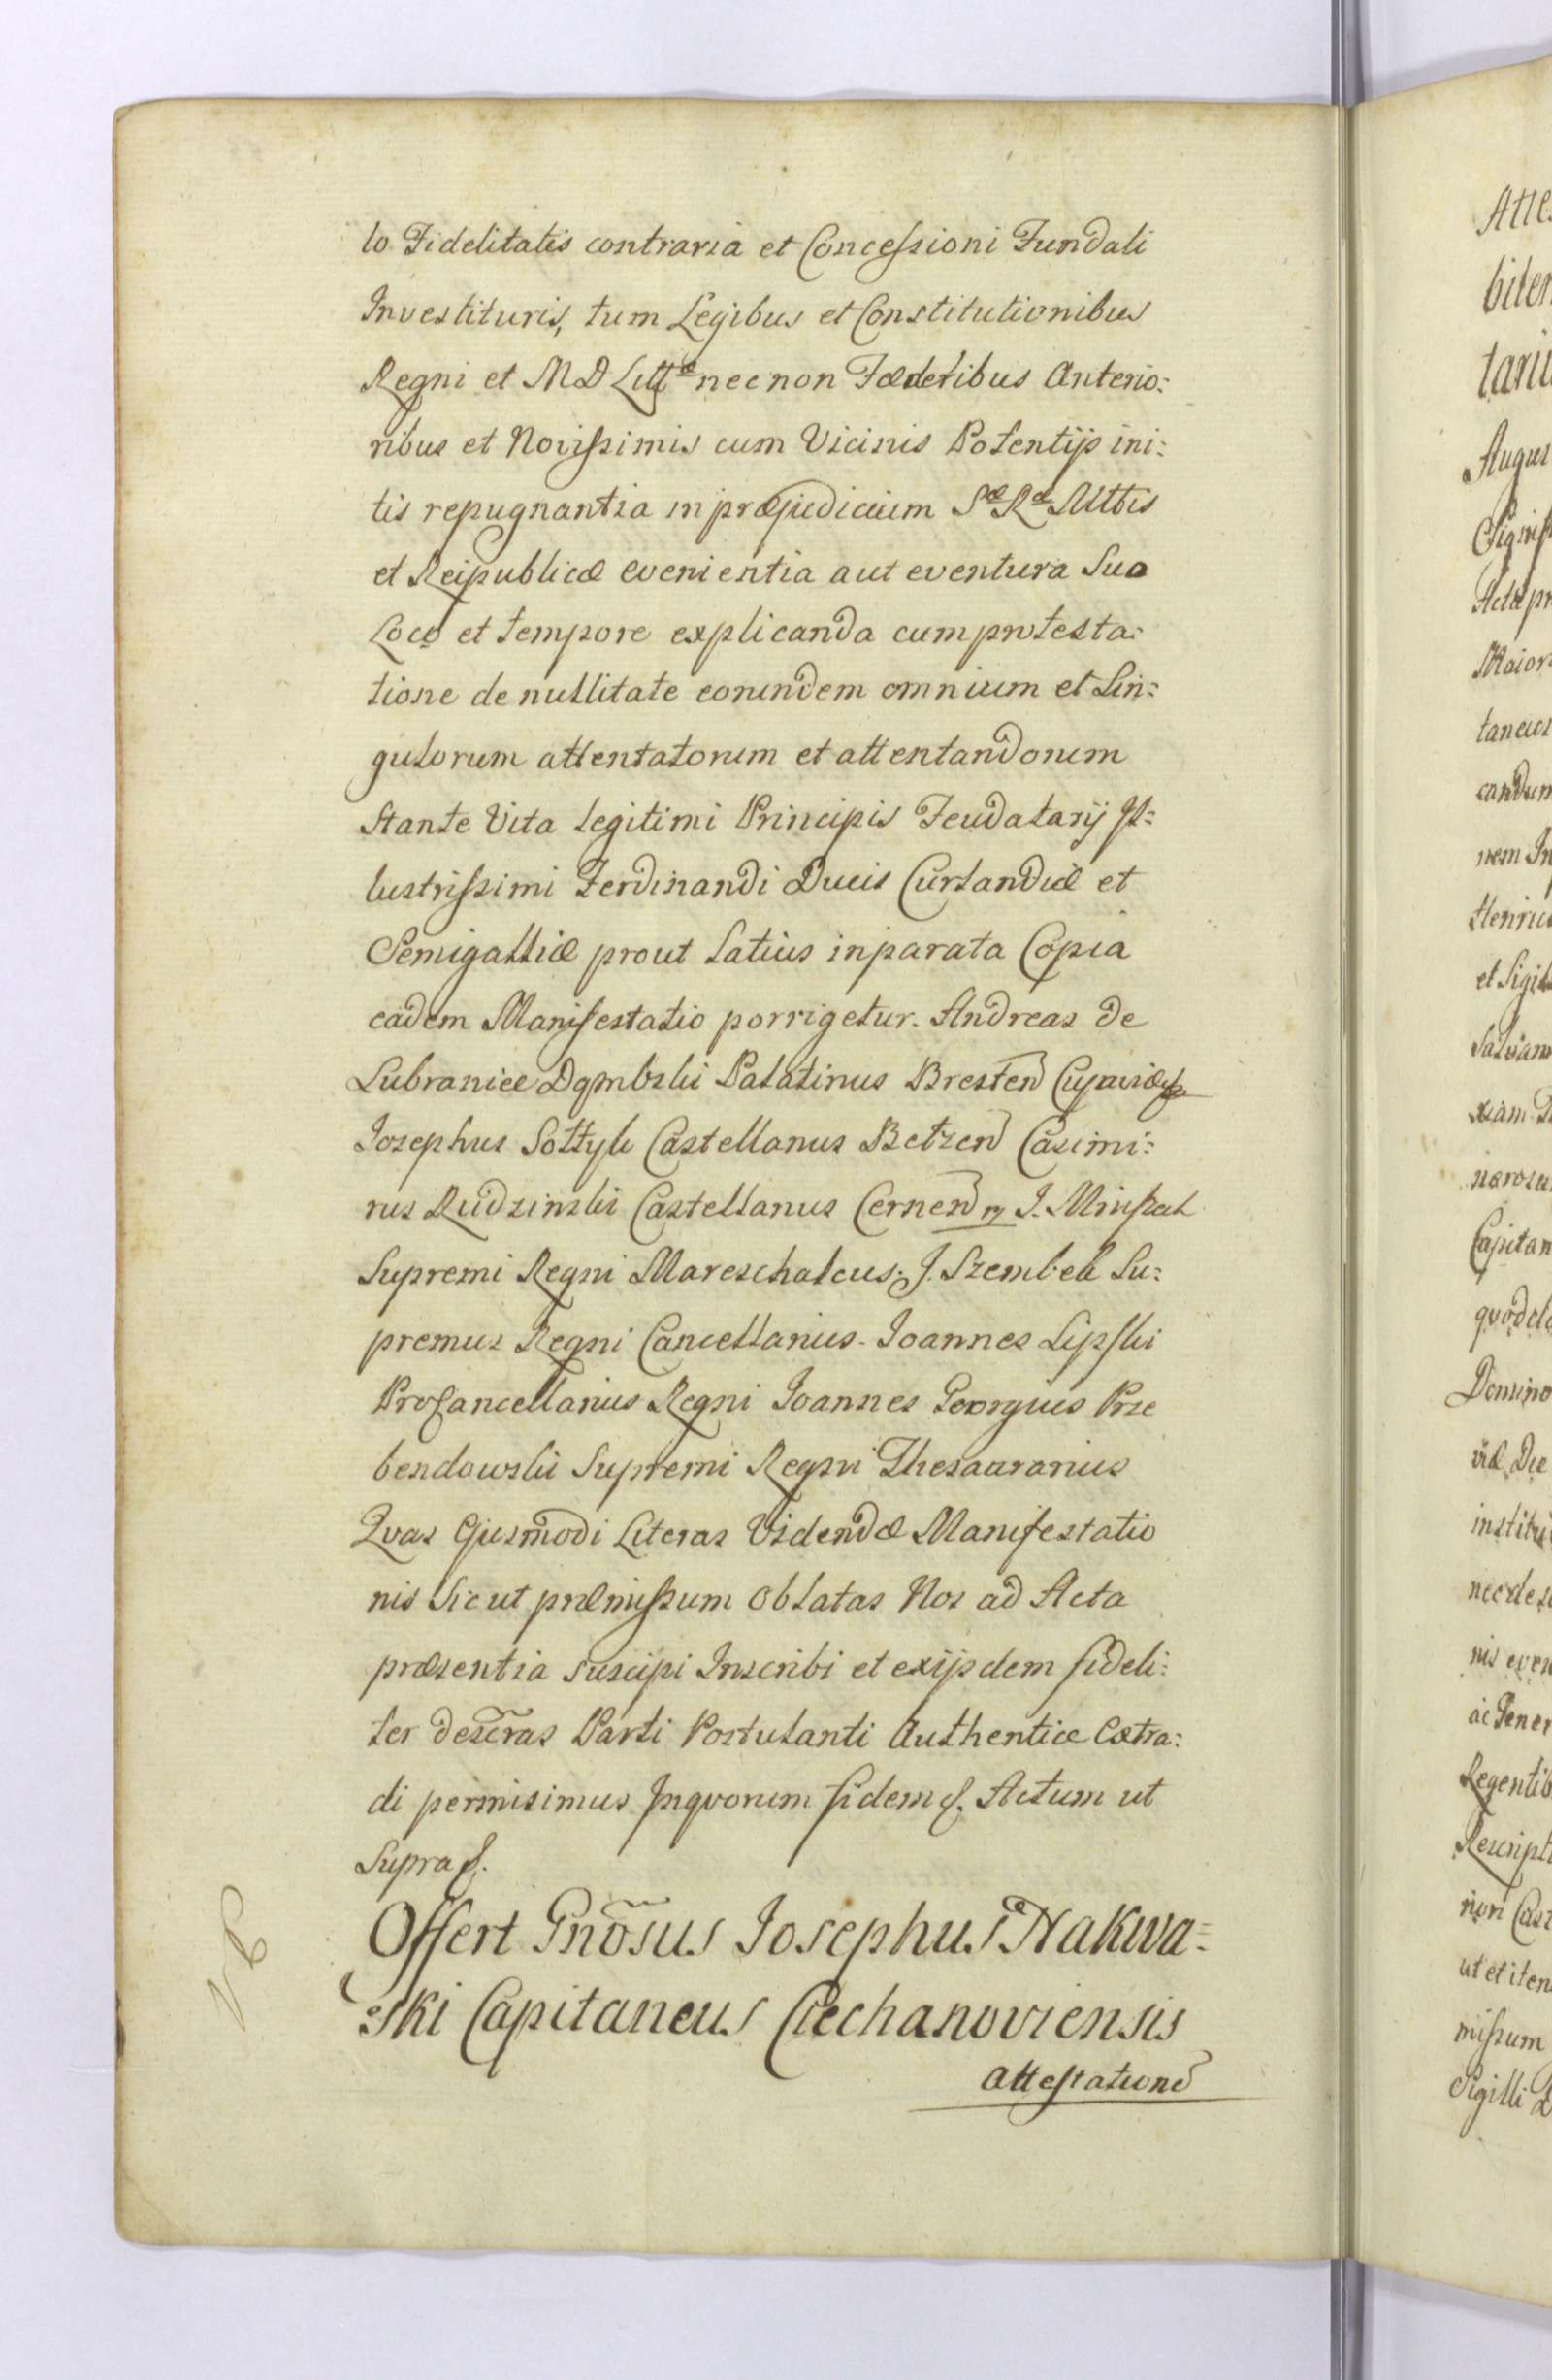 lo Fidelitatis contraria et Concessioni Fundali
Investituris, tum Legibus et Constitutionibus
Regni et M D Littæ nec non Fœderibus Anterio:
ribus et Novissimis cum Vicinis Potentijs ini:
tis repugnantia in præjudicium Sæ Ræ Mttis
et Reipublicæ evenientia aut eventura Suo
Loco et tempore explicanda cum protesta:
tione de nullitate eorundem omnium et Sin:
gulorum attentatorum et attentandorum
Stante Vita legitimi Principis Feudatarij Il:
lustrissimi Ferdinandi Ducis Curlandiæ et
Semigalliæ prout Latius in parata Copia
eadem Manifestatio porrigetur. Andreas de
Lubraniec Dąmbski Palatinus Bresten Cujaviæ
Josephus Sołtyk Castellanus Betzen Casimi:
rus Rudzinski Castellanus Cernen J. Mniszech
Supremi Regni Mareschalcus. J. Szembek Su:
premus Regni Cancellarius. Joannes Lipski
ProCancellarius Regni Joannes Georgius Prze
bendowski Supremi Regni Thesaurarius
Qvas Ejusmodi Literas Videndæ Manifestatio
nis Sicut præmissum oblatas Nos ad Acta
præsentia suscipi Inscribi et exijsdem fideli:
ter descras Parti Postulanti Authentice Extra:
di permisimus Inqvorum fidem. Actum ut
Supra
Offert Gnosus Josephus Nakwa:
:ski Capitaneus Ciechanoviensis
attestatione
Atte
biten
tariu
Augus
Signif
Acta pr
Maior
taneos
candum
nem In
Henric
et Sigil
Salvam
Capitan
qvod cla
Domino
institu
nis even
ac Gener
Regentib
Rescript
non Cast
ut et iten
missum
Sigilli